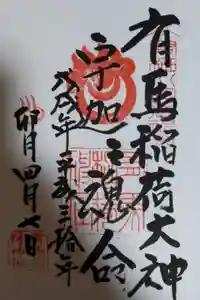 有馬稲荷大神
宇加之魂命
戊戌年 平成三拾年
卯月四月七日